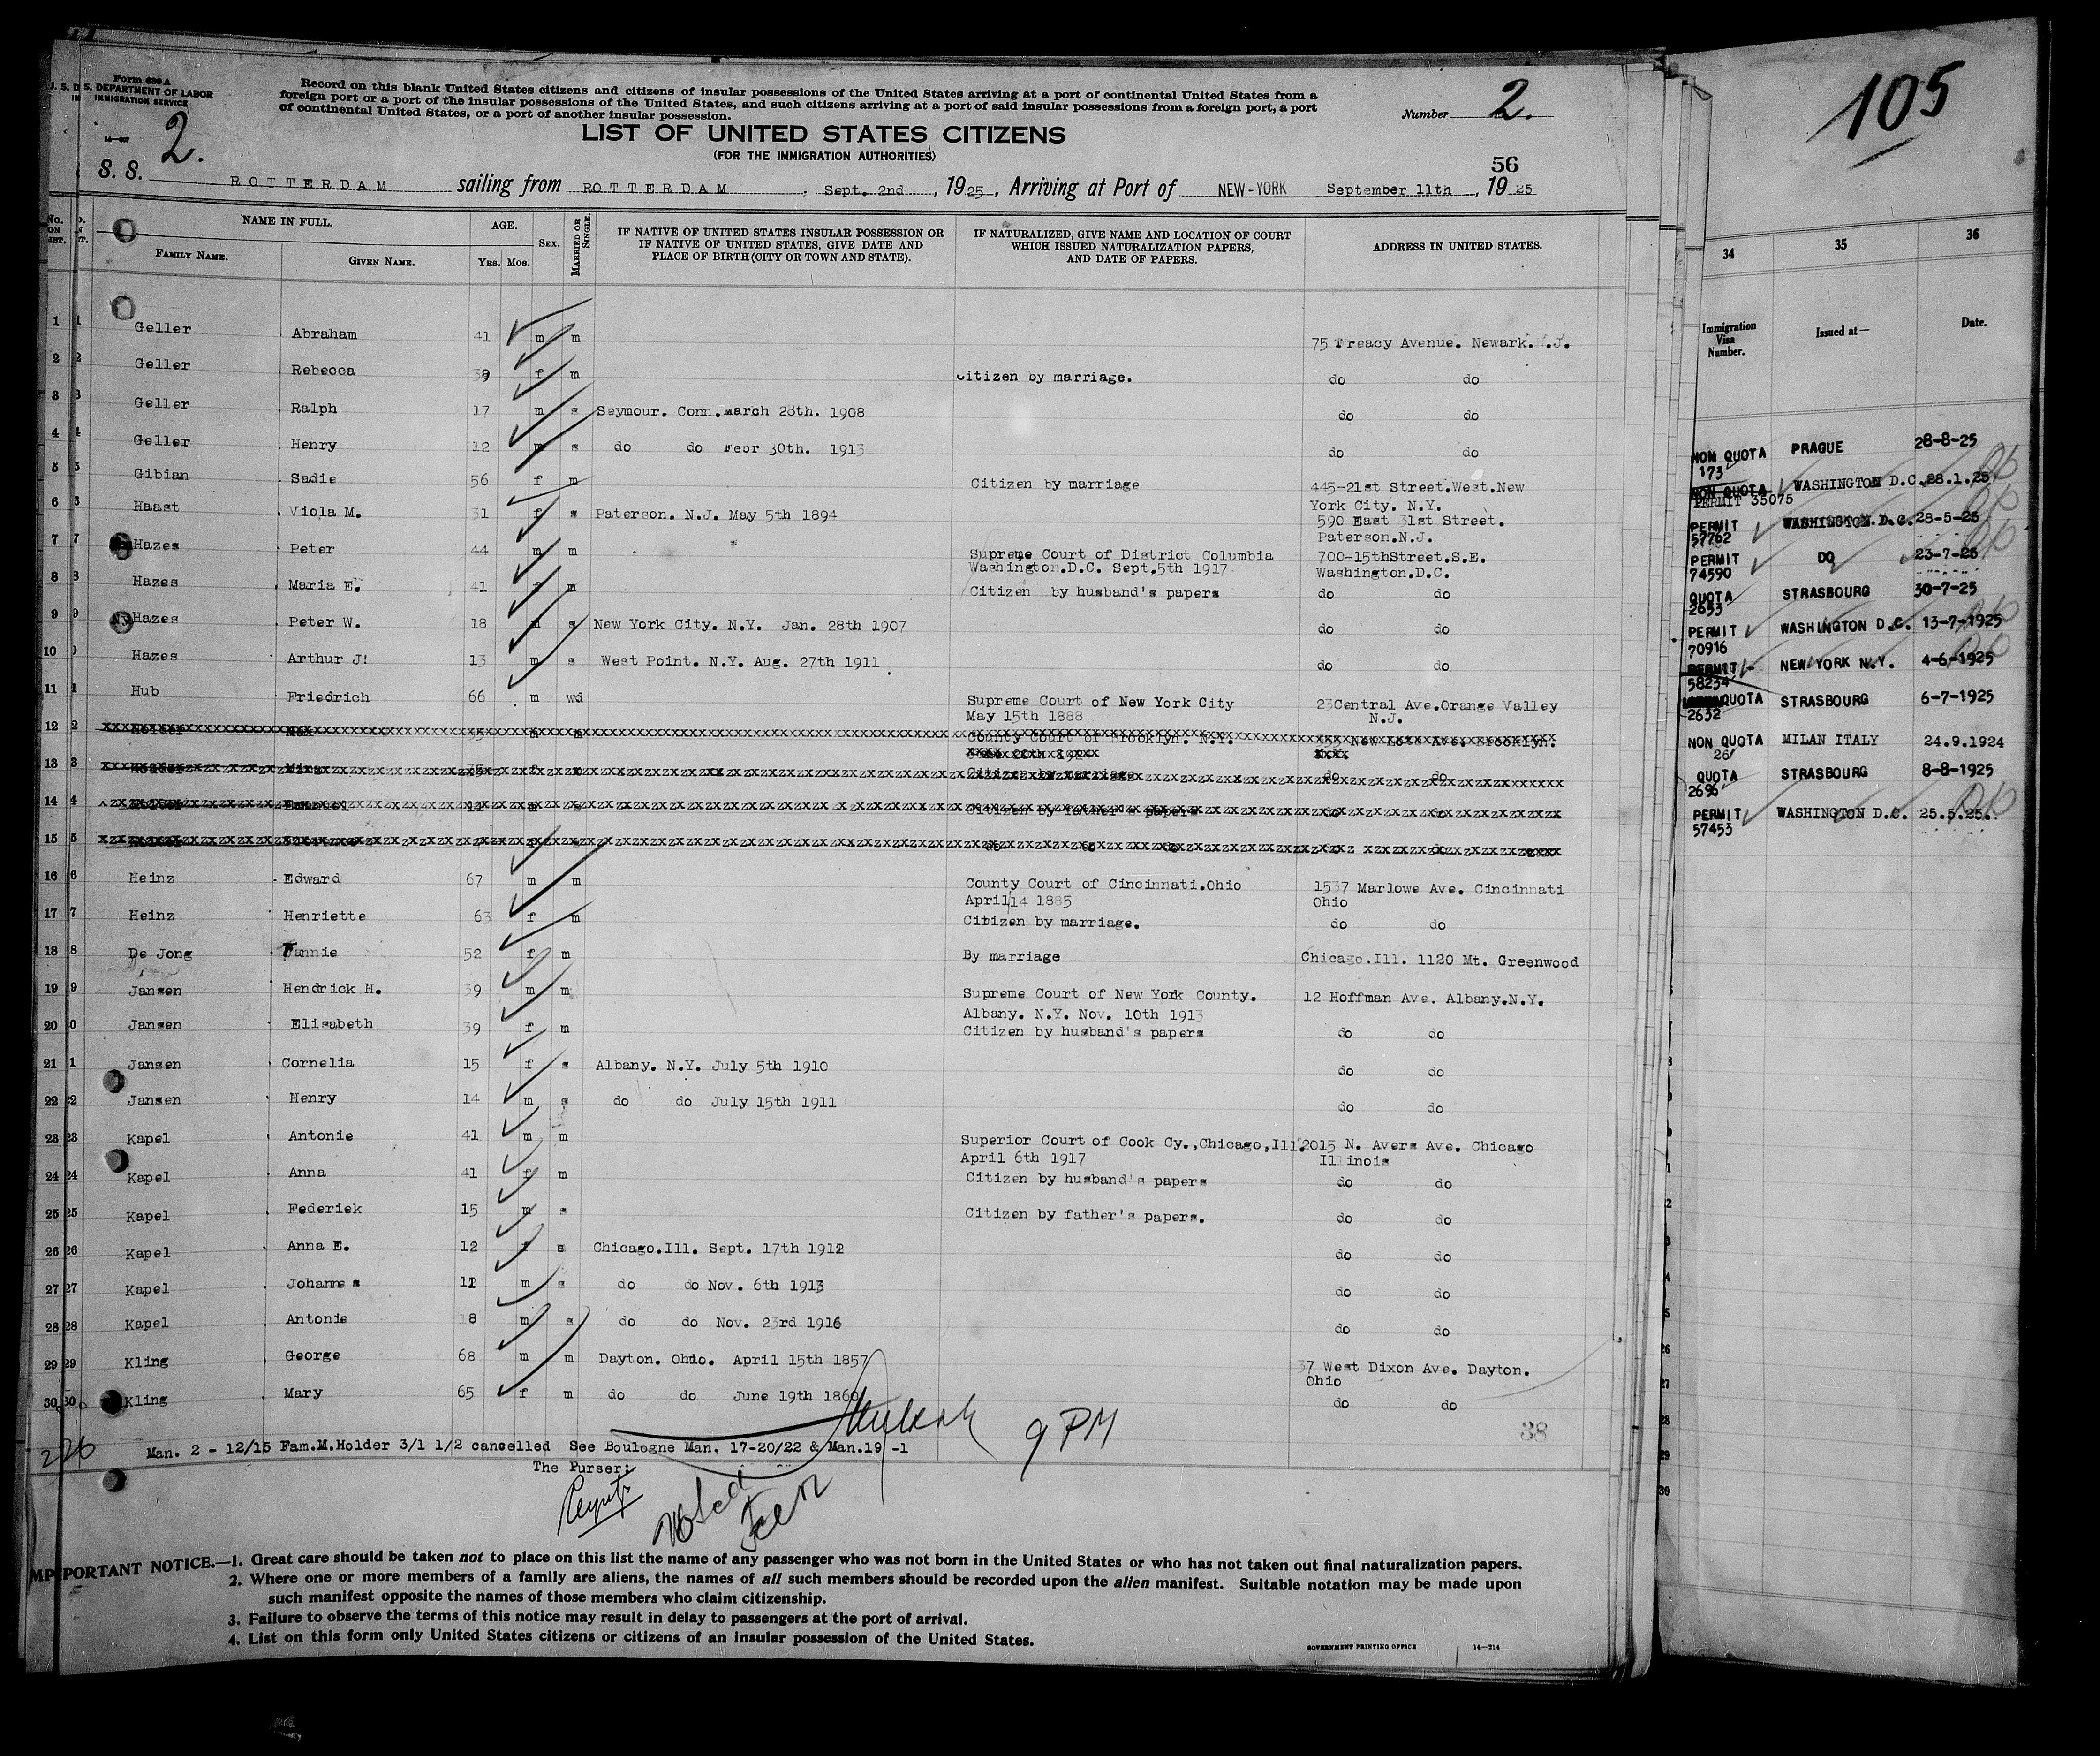 Form 630 A
U. S. DEPARTMENT OF LABOR
IMMIGRATION SERVICE
Record on this blank United States citizens and citizens of insular possessions of the United States arriving at a port of continental United States from a
foreign port or a port of the insular possessions of the United States, and such citizens arriving at a port of said insular possessions from a foreign port, a port
of continental United States, or a port of another insular possession.
Number 2.
2.
LIST OF UNITED STATES CITIZENS
(FOR THE IMMIGRATION AUTHORITIES)
56
S. S. ROTTERDAM sailing from ROTTERDAM, Sept. 2nd, 1925, Arriving at Port of NEW-YORK September 11th, 1925
No. ON LIST. NAME IN FULL. AGE. SEX. MARRIED OR SINGLE. IF NATIVE OF UNITED STATES INSULAR POSSESSION OR IF NATIVE OF UNITED STATES, GIVE DATE AND PLACE OF BIRTH (CITY OR TOWN AND STATE). IF NATURALIZED, GIVE NAME AND LOCATION OF COURT WHICH ISSUED NATURALIZATION PAPERS, AND DATE OF PAPERS. ADDRESS IN UNITED STATES.
FAMILY NAME. GIVEN NAME. YRS. MOS.
1 Geller Abraham 41 m m 75 Treacy Avenue. Newark.N.J.
2 Geller Rebecca 39 f m Citizen by marriage. do do
3 Geller Ralph 17 m s Seymour. Conn. march 28th. 1908 do do
4 Geller Henry 12 m s do do Febr 30th. 1913 do do
5 Gibian Sadie 56 f m Citizen by marriage 445-21st Street.West.New
York City. N.Y.
6 Haast Viola M. 31 f s Paterson. N.J. May 5th 1894 590 East 31st Street.
Paterson.N.J.
7 Hazes Peter 44 m m Supreme Court of District Columbia 700-15thStreet.S.E.
Washington.D.C. Sept.5th 1917 Washington.D.C.
8 Hazes Maria E. 41 f m Citizen by husband's papers do do
9 Ny Hazes Peter W. 18 m s New York City. N.Y. Jan. 28th 1907 do do
10 Hazes Arthur J. 13 m s West Point. N.Y. Aug. 27th 1911 do do
11 Hub Friedrich 66 m wd Supreme Court of New York City 23Central Ave.Orange Valley
May 15th 1888 N.J.
12 Holder County Court of Brooklyn. N.Y. New Lots Ave. Brooklyn.
13 Holder Citizen by marriage do do
14 Citizen by father's papers do do
15 do do
16 Heinz Edward 67 m m County Court of Cincinnati.Ohio 1537 Marlowe Ave. Cincinnati
April 14 1885 Ohio
17 Heinz Henriette 63 f m Citizen by marriage. do do
18 De Jong Fannie 52 f m By marriage Chicago.Ill. 1120 Mt. Greenwood
19 Jansen Hendrick H. 39 m m Supreme Court of New York County. 12 Hoffman Ave. Albany.N.Y.
Albany. N.Y. Nov. 10th 1913
20 Jansen Elisabeth 39 f m Citizen by husband's papers do do
21 Jansen Cornelia 15 f s Albany. N.Y. July 5th 1910 do do
22 Jansen Henry 14 m s do do July 15th 1911 do do
23 Kapel Antonie 41 m m Superior Court of Cook Cy.,Chicago,Ill. 2015 N. Avers Ave. Chicago
April 6th 1917 Illinois
24 Kapel Anna 41 f m Citizen by husband's papers do do
25 Kapel Federiek 15 m s Citizen by father's papers. do do
26 Kapel Anna E. 12 f s Chicago.Ill. Sept. 17th 1912 do do
27 Kapel Johannes 11 m s do do Nov. 6th 1913 do do
28 Kapel Antonie 8 m s do do Nov. 23rd 1916 do do
29 Kling George 68 m m Dayton. Ohio. April 15th 1857 37 West Dixon Ave. Dayton.
Ohio
30 Kling Mary 65 f m do do June 19th 1860 do do
9 PM
38
226
Man. 2 - 12/15 Fam.M.Holder 3/1 1/2 cancelled See Boulogne Man. 17-20/22 & Man.19 -1
The Purser:
IMPORTANT NOTICE.—1. Great care should be taken not to place on this list the name of any passenger who was not born in the United States or who has not taken out final naturalization papers.
2. Where one or more members of a family are aliens, the names of all such members should be recorded upon the alien manifest. Suitable notation may be made upon
such manifest opposite the names of those members who claim citizenship.
3. Failure to observe the terms of this notice may result in delay to passengers at the port of arrival.
4. List on this form only United States citizens or citizens of an insular possession of the United States.
GOVERNMENT PRINTING OFFICE 14-214
105
34 35 36
Immigration Visa Number. Issued at— Date.
NON QUOTA 173 PRAGUE 28-8-25
NON QUOTA PERMIT 35075 WASHINGTON D.C. 28.1.25
PERMIT 57762 WASHINGTON.D.C. 28-5-25
PERMIT 74590 DO 23-7-25
QUOTA 2653 STRASBOURG 30-7-25
PERMIT 70916 WASHINGTON D.C. 13-7-1925
PERMIT 58234 NEW YORK N.Y. 4-6-1925
QUOTA 2632 STRASBOURG 6-7-1925
NON QUOTA 26 MILAN ITALY 24.9.1924
QUOTA 2696 STRASBOURG 8-8-1925
PERMIT 57453 WASHINGTON D.C. 25.5.25.